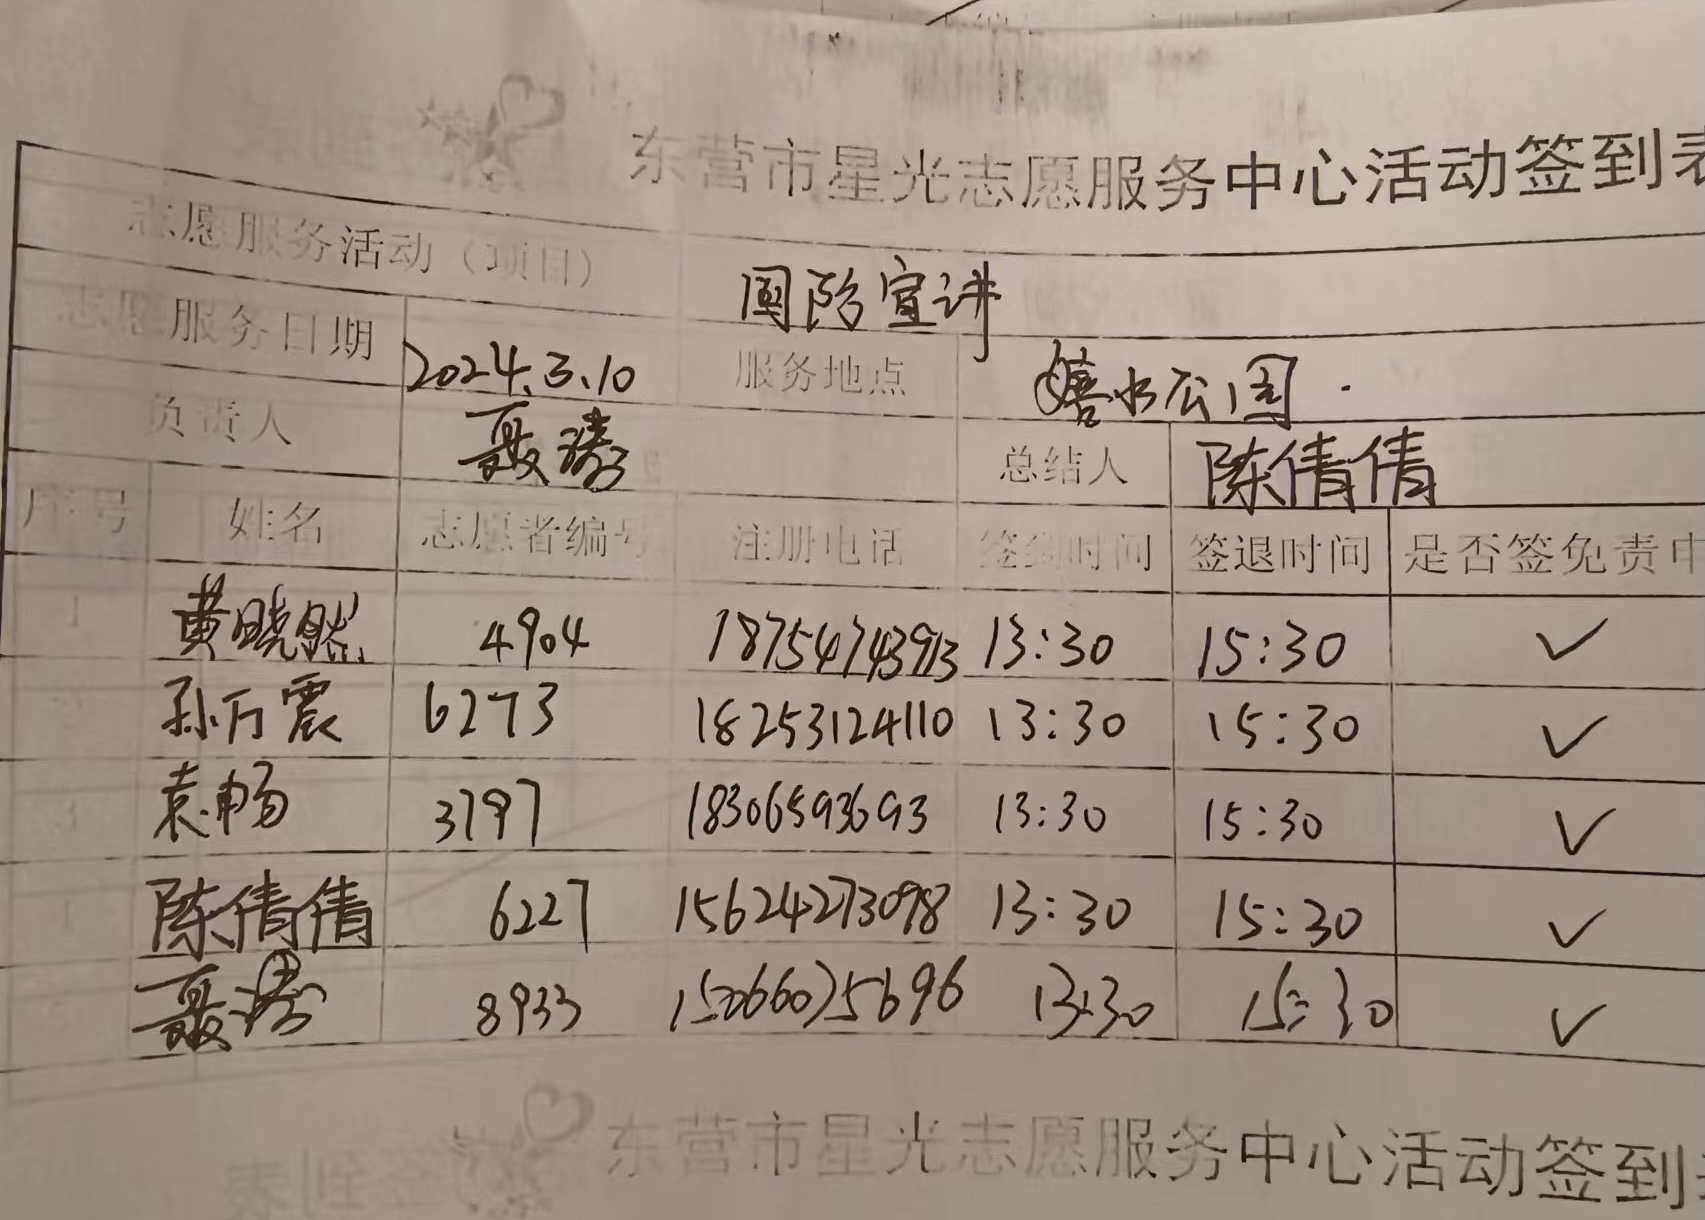 东营市星光志愿服务中心活动签到表
志愿服务活动（项目） 国防宣讲
志愿服务日期 2024.3.10 服务地点 嬉水公园
负责人 聂涛 总结人 陈倩倩
序号 姓名 志愿者编号 注册电话 签到时间 签退时间 是否签免责申
1 黄晓然 4904 18754743913 13:30 15:30 ✓
孙万震 6273 18253124110 13:30 15:30 ✓
3 袁畅 3797 18306593693 13:30 15:30 ✓
陈倩倩 6227 15624273098 13:30 15:30 ✓
聂涛 8933 15066075696 13:30 15:30 ✓
东营市星光志愿服务中心活动签到